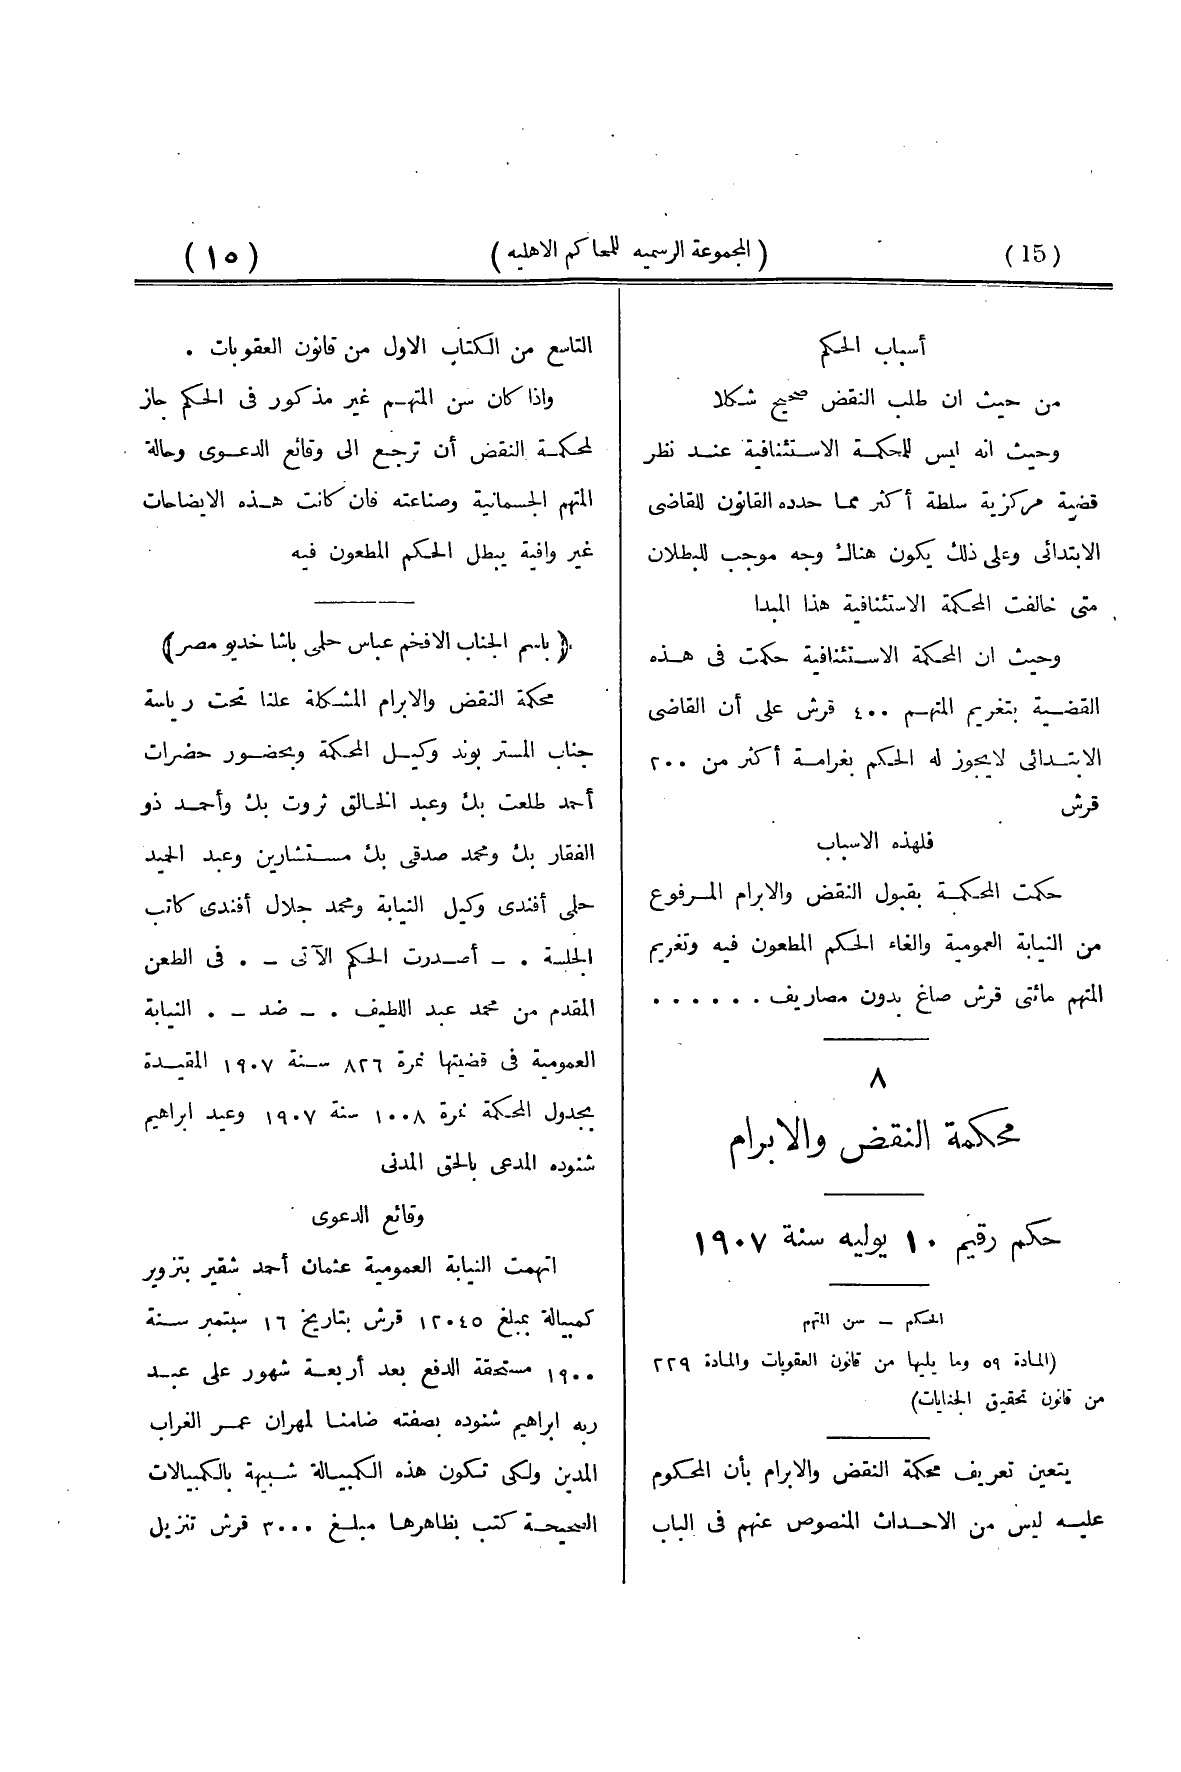 (15) (المجموعة الرسميه للمحاكم الاهليه) (١٥)
أسباب الحكم
من حيث ان طلب النقض صحيح شكلا
وحيث انه ليس للمحكمة الاستئنافية عند نظر
قضية مركزية سلطة أكثر مما حدده القانون للقاضى
الابتدائى وعلى ذلك يكون هناك وجه موجب للبطلان
متى خالفت المحكمة الاستئنافية هذا المبدا
وحيث ان المحكمة الاستئنافية حكمت فى هذه
القضية بتغريم المتهم ٤٠٠ قرش على أن القاضى
الابتدائى لايجوز له الحكم بغرامة أكثر من ٢٠٠
قرش
فلهذه الاسباب
حكمت المحكمة بقبول النقض والابرام المرفوع
من النيابة العمومية والغاء الحكم المطعون فيه وتغريم
المتهم مائتى قرش صاغ بدون مصاريف . . . . . .
٨
محكمة النقض والابرام
حكم رقيم ١٠ يوليه سنة ١٩٠٧
الحكم – سن المتهم
(المادة ٥٩ وما يليها من قانون العقوبات والمادة ٢٢٩
من قانون تحقيق الجنايات)
يتعين تعريف محكمة النقض والابرام بأن المحكوم
عليه ليس من الاحداث المنصوص عنهم فى الباب
التاسع من الكتاب الاول من قانون العقوبات .
واذا كان سن المتهم غير مذكور فى الحكم جاز
لمحكمة النقض أن ترجع الى وقائع الدعوى وحالة
المتهم الجسمانية وصناعته فان كانت هذه الايضاحات
غير وافية يبطل الحكم المطعون فيه
(باسم الجناب الافخم عباس حلمى باشا خديو مصر)
محكمة النقض والابرام المشكلة علنا تحت رياسة
جناب المستر بوند وكيل المحكمة وبحضور حضرات
أحمد طلعت بك وعبد الخالق ثروت بك وأحمد ذو
الفقار بك ومحمد صدقى بك مستشارين وعبد الحميد
حلمى أفندى وكيل النيابة ومحمد جلال أفندى كاتب
الجلسة . – أصدرت الحكم الآتى – . فى الطعن
المقدم من محمد عبد اللطيف . – ضد – . النيابة
العمومية فى قضيتها نمرة ٨٢٦ سنة ١٩٠٧ المقيدة
بجدول المحكمة نمرة ١٠٠٨ سنة ١٩٠٧ وعبد ابراهيم
شنوده المدعى بالحق المدنى
وقائع الدعوى
اتهمت النيابة العمومية عثمان أحمد شقير بتزوير
كمبيالة بمبلغ ١٢٠٤٥ قرش بتاريخ ١٦ سبتمبر سنة
١٩٠٠ مستحقة الدفع بعد أربعة شهور على عبد
ربه ابراهيم شنوده بصفته ضامنا لمهران عمر الغراب
المدين ولكى تكون هذه الكمبيالة شبيهة بالكمبيالات
الصحيحة كتب بظاهرها مبلغ ٣٠٠٠ قرش تنزيل